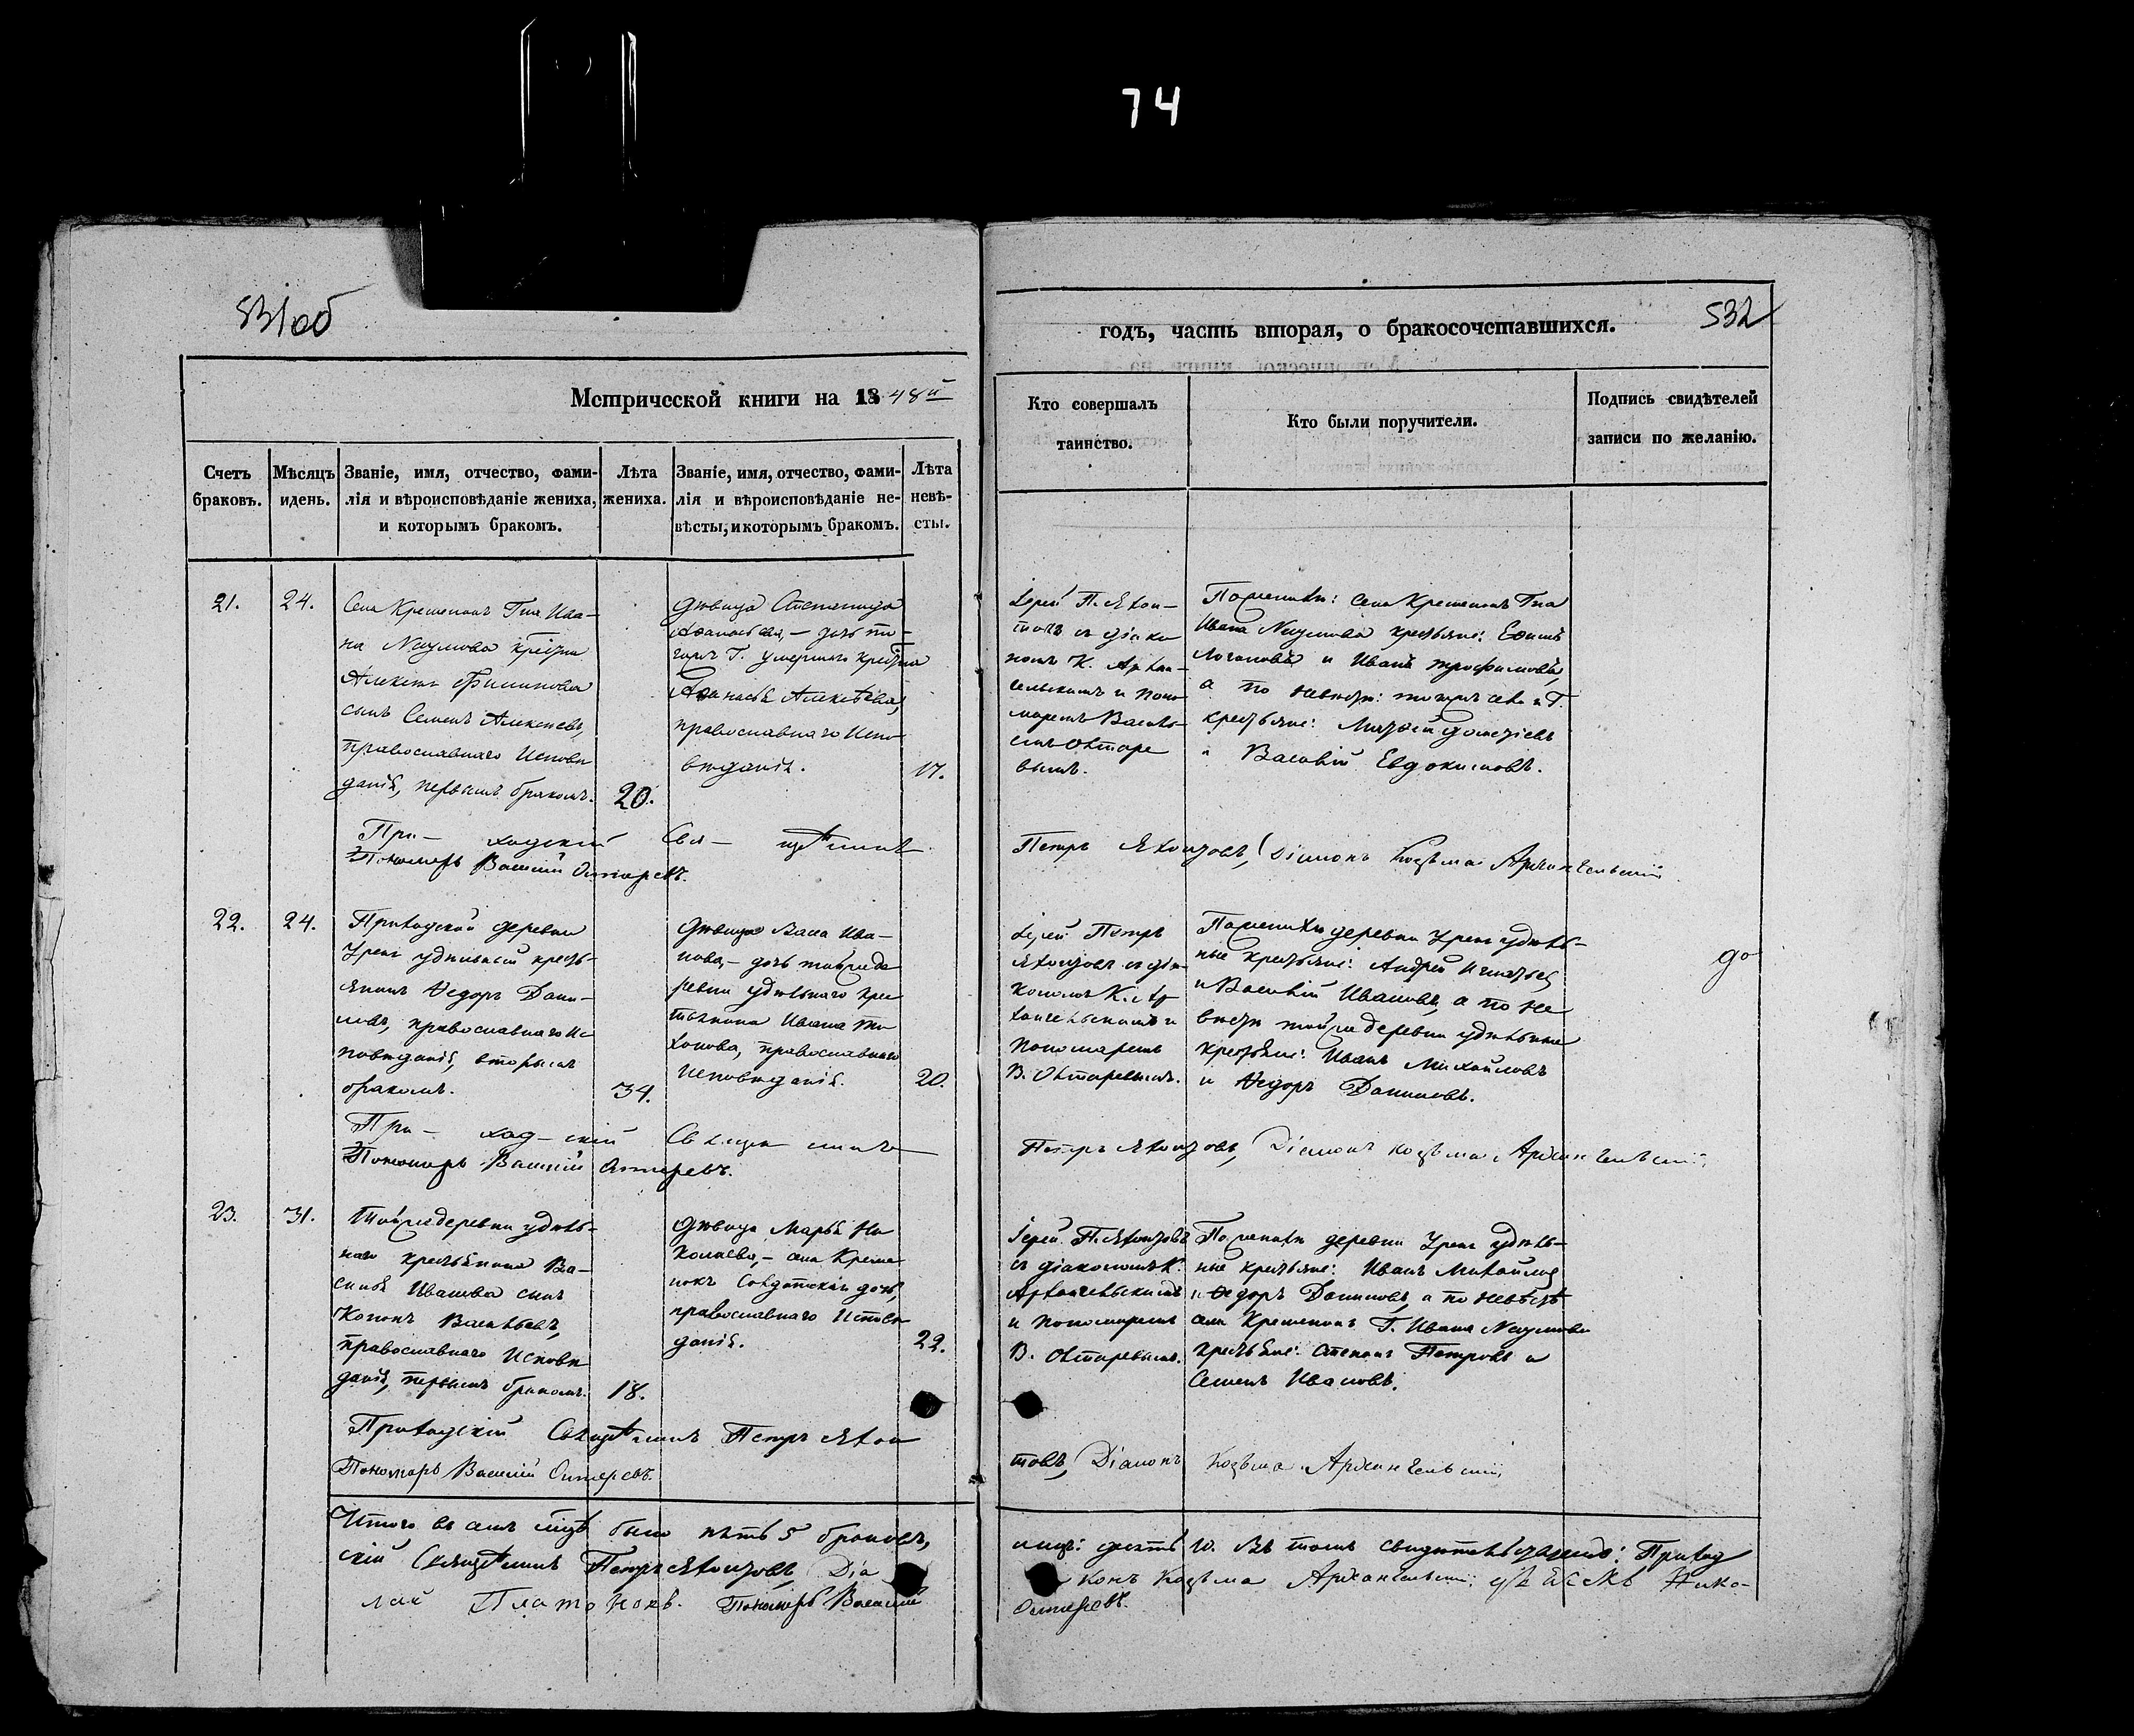 74
531об
532
Метрической книги на 1848й
годъ, часть вторая, о бракосочетавшихся.
Счетъ браковъ.
Мѣсяцъ и день.
Званіе, имя, отчество, фами-
лія и вѣроисповѣданіе жениха,
и которымъ бракомъ.
Лѣта
жениха.
Званіе, имя, отчество, фами-
лія и вѣроисповѣданіе не-
вѣсты, и которымъ бракомъ.
Лѣта
невѣ-
сты.
Кто совершалъ
таинство.
Кто были поручители.
Подпись свидѣтелей
записи по желанію.
21.
24.
Села Кременокъ Гна Ива-
на Наумова
Алексѣя Филипова
сынъ Семенъ Алексеевъ,
православнаго Исповѣ
данія, первымъ бракомъ.
20.
Дѣвица Степанида
Афанасьева, – дочь то-
Г. умершаго
Афанасья Алексѣева,
православнаго Испо
вѣданія.
17.
Іерей П. Яхон-
товъ съ діако
номъ К. Архан-
гельскимъ и поно
маремъ Василь-
емъ Охтаре
вымъ.
По женихѣ: села Кременокъ Гна
Ивана Наумова крестьяне: Ефимъ
и Иванъ Трофимовъ,
а по невѣстѣ: тогожъ села и Г.
крестьяне:
и Василій Евдокимовъ.
При- ходскій Свя- щенникъ
Петръ Яхонтовъ, Діаконъ Козьма Архангельскій
Пономарь Василій Охтаревъ.
22.
24.
Приходской деревни
Урени удѣльный кресть-
янинъ Ѳедоръ Дани-
ловъ, православнаго Ис
повѣданія, вторымъ
бракомъ.
34.
Дѣвица Васа Ива-
нова, – дочь той же де
ревни удѣльнаго крес
тьянина Ивана Ти
хонова, православнаго
Исповѣданія.
20.
Іерей Петръ
Яхонтовъ съ діа-
кономъ К. Ар
хангельскимъ и
Пономаремъ
В. Охтаревымъ.
По женихѣ деревни Урени удѣль-
ные крестьяне: Андрей Игнатьевъ
и Василій Ивановъ, а по не
вѣстѣ той же деревни удѣльные
крестьяне: Иванъ Михайловъ
и Ѳедоръ Даниловъ.
до
При- ход-скій Священникъ
Петръ Яхонтовъ, Діаконъ Козьма Архангельскій
Пономарь Василій Охтаревъ.
23.
31.
Той же деревни удѣль-
наго крестьянина Ва-
силья Иванова сынъ
Кононъ Васильевъ,
православнаго Исповѣ
данія, первымъ бракомъ.
18.
Дѣвица Марья Ни
колаева, – села Креме
нокъ Солдатская дочь,
православнаго Исповѣ
данія.
22.
Іерей П. Яхонтовъ
съ діакономъ К.
Архангельскимъ
и Пономаремъ
В. Охтаревымъ.
По женихѣ деревни Урени удѣль-
ные крестьяне: Иванъ Михайловъ
и Ѳедоръ Даниловъ, а по невѣстѣ
села Кременокъ Г. Ивана Наумова
крестьяне: Степанъ Петровъ и
Семенъ Ивановъ.
Приходскій Священникъ Петръ Яхон
товъ, Діаконъ Козьма Архангельскій
Пономарь Василій Охтаревъ.
Итого въ семъ мцѣ было пять 5 браковъ,
лицъ: десять 10. Въ томъ свидѣтельствуемъ: Приход
скій Священникъ Петръ Яхонтовъ, Діа
конъ Козьма Архангельскій, Нико-
лай Платоновъ. Пономарь Василій
Охтаревъ.